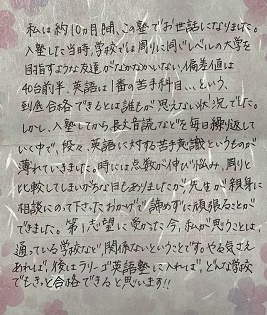 私は約10ヵ月間、この塾でお世話になりました。
入塾した当時、学校では周りに同じレベルの大学を
目指すような友達がなかなかいない、偏差値は
40台前半、英語は1番の苦手科目、、、という、
到底合格できるとは誰もが思えない状況でした。
しかし、入塾してから長文音読などを毎日繰り返して
いく中で、段々、英語に対する苦手意識というものが
薄れていきました。時には点数が伸び悩み、周りと
比較してしまいがちな日もありましたが、先生が親身に
相談にのって下さったおかげで諦めずに頑張ることが
できました。第1志望に受かった今、私が思うことは、
通っている学校など関係ないということです。やる気さえ
あれば、後はラリーゴ英語塾に入れば、どんな学校
でもきっと合格できると思います!!